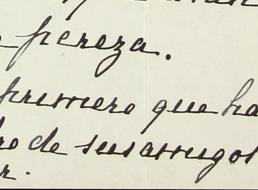 pereza.
primero que ha
de sus amigos
r.